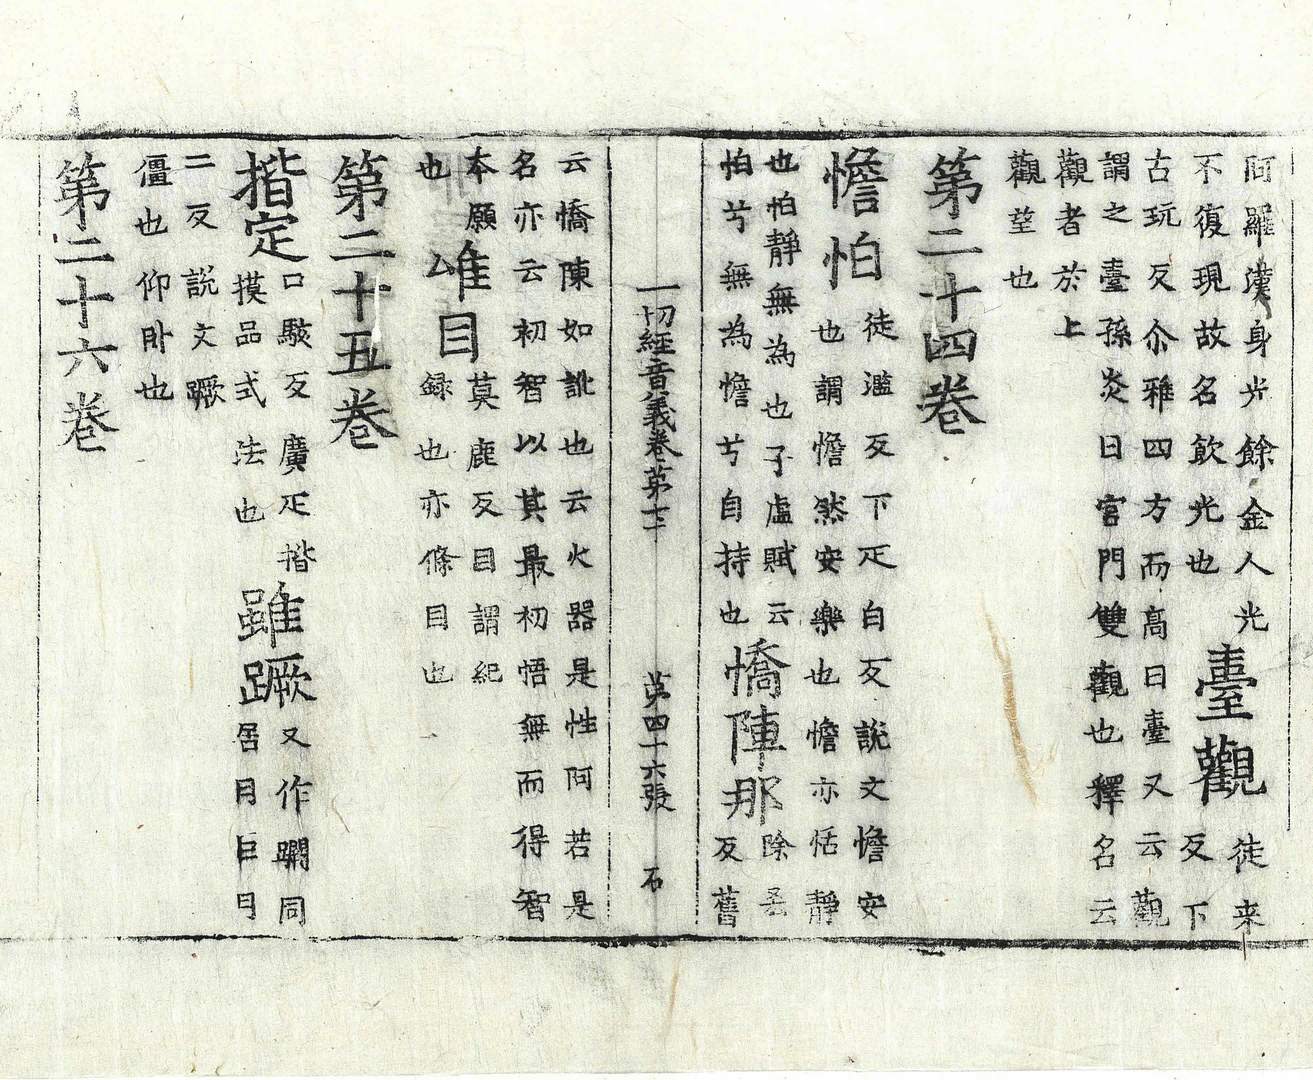 阿羅漢身光餘金人光
不復現故名飲光也
臺觀
徒来
反下
古玩反尒雅四方而高曰臺又云觀
謂之臺孫炎曰宮門雙觀也釋名云
觀者於上
觀望也
第二十四卷
憺怕
徒濫反下疋白反說文憺安
也謂憺然安樂也憺亦恬靜
也怕靜無為也子虛賦云
怕兮無為憺兮自持也
憍陳那
除
反舊
一切經音義卷第十二
第四十六張
石
云憍陳如訛也云火器是性阿若是
名亦云初智以其最初悟無而得智
本願
也
唯目
莫鹿反目謂紀
録也亦條目也
第二十五卷
揩定
口駭反廣疋揩
摸品式法也
雖蹶
又作蹷同
居月巨月
二反說文蹶
僵也仰卧也
第二十六卷